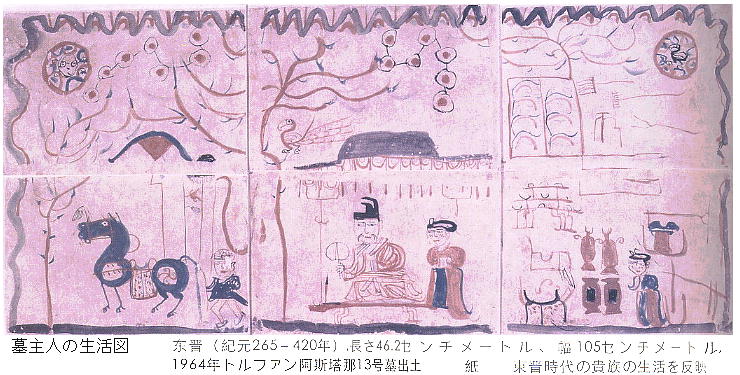 墓主人の生活図
东晋(紀元265-420年),長さ46.2センチメートル、幅105センチメートル,
1964年トルファン阿斯塔那13号墓出土 紙 東晋時代の貴族の生活を反映